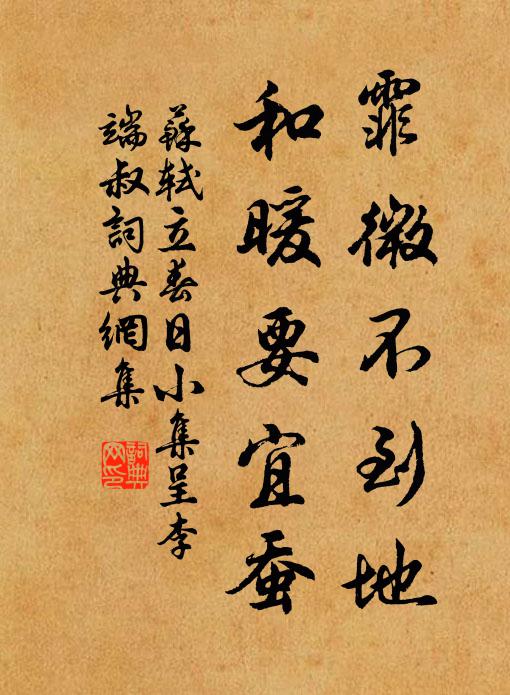 霏微不到地
和暖要宜蚕
蘇軾立春日小集呈李
端叔詞典網集
詞典网印